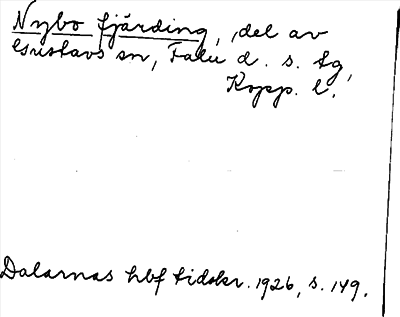 Nybo fjärding, del av
Gustavs sn, Falu d. s. tg,
Kopp. l.
Dalarnas hbf tidskr. 1926, s. 149.